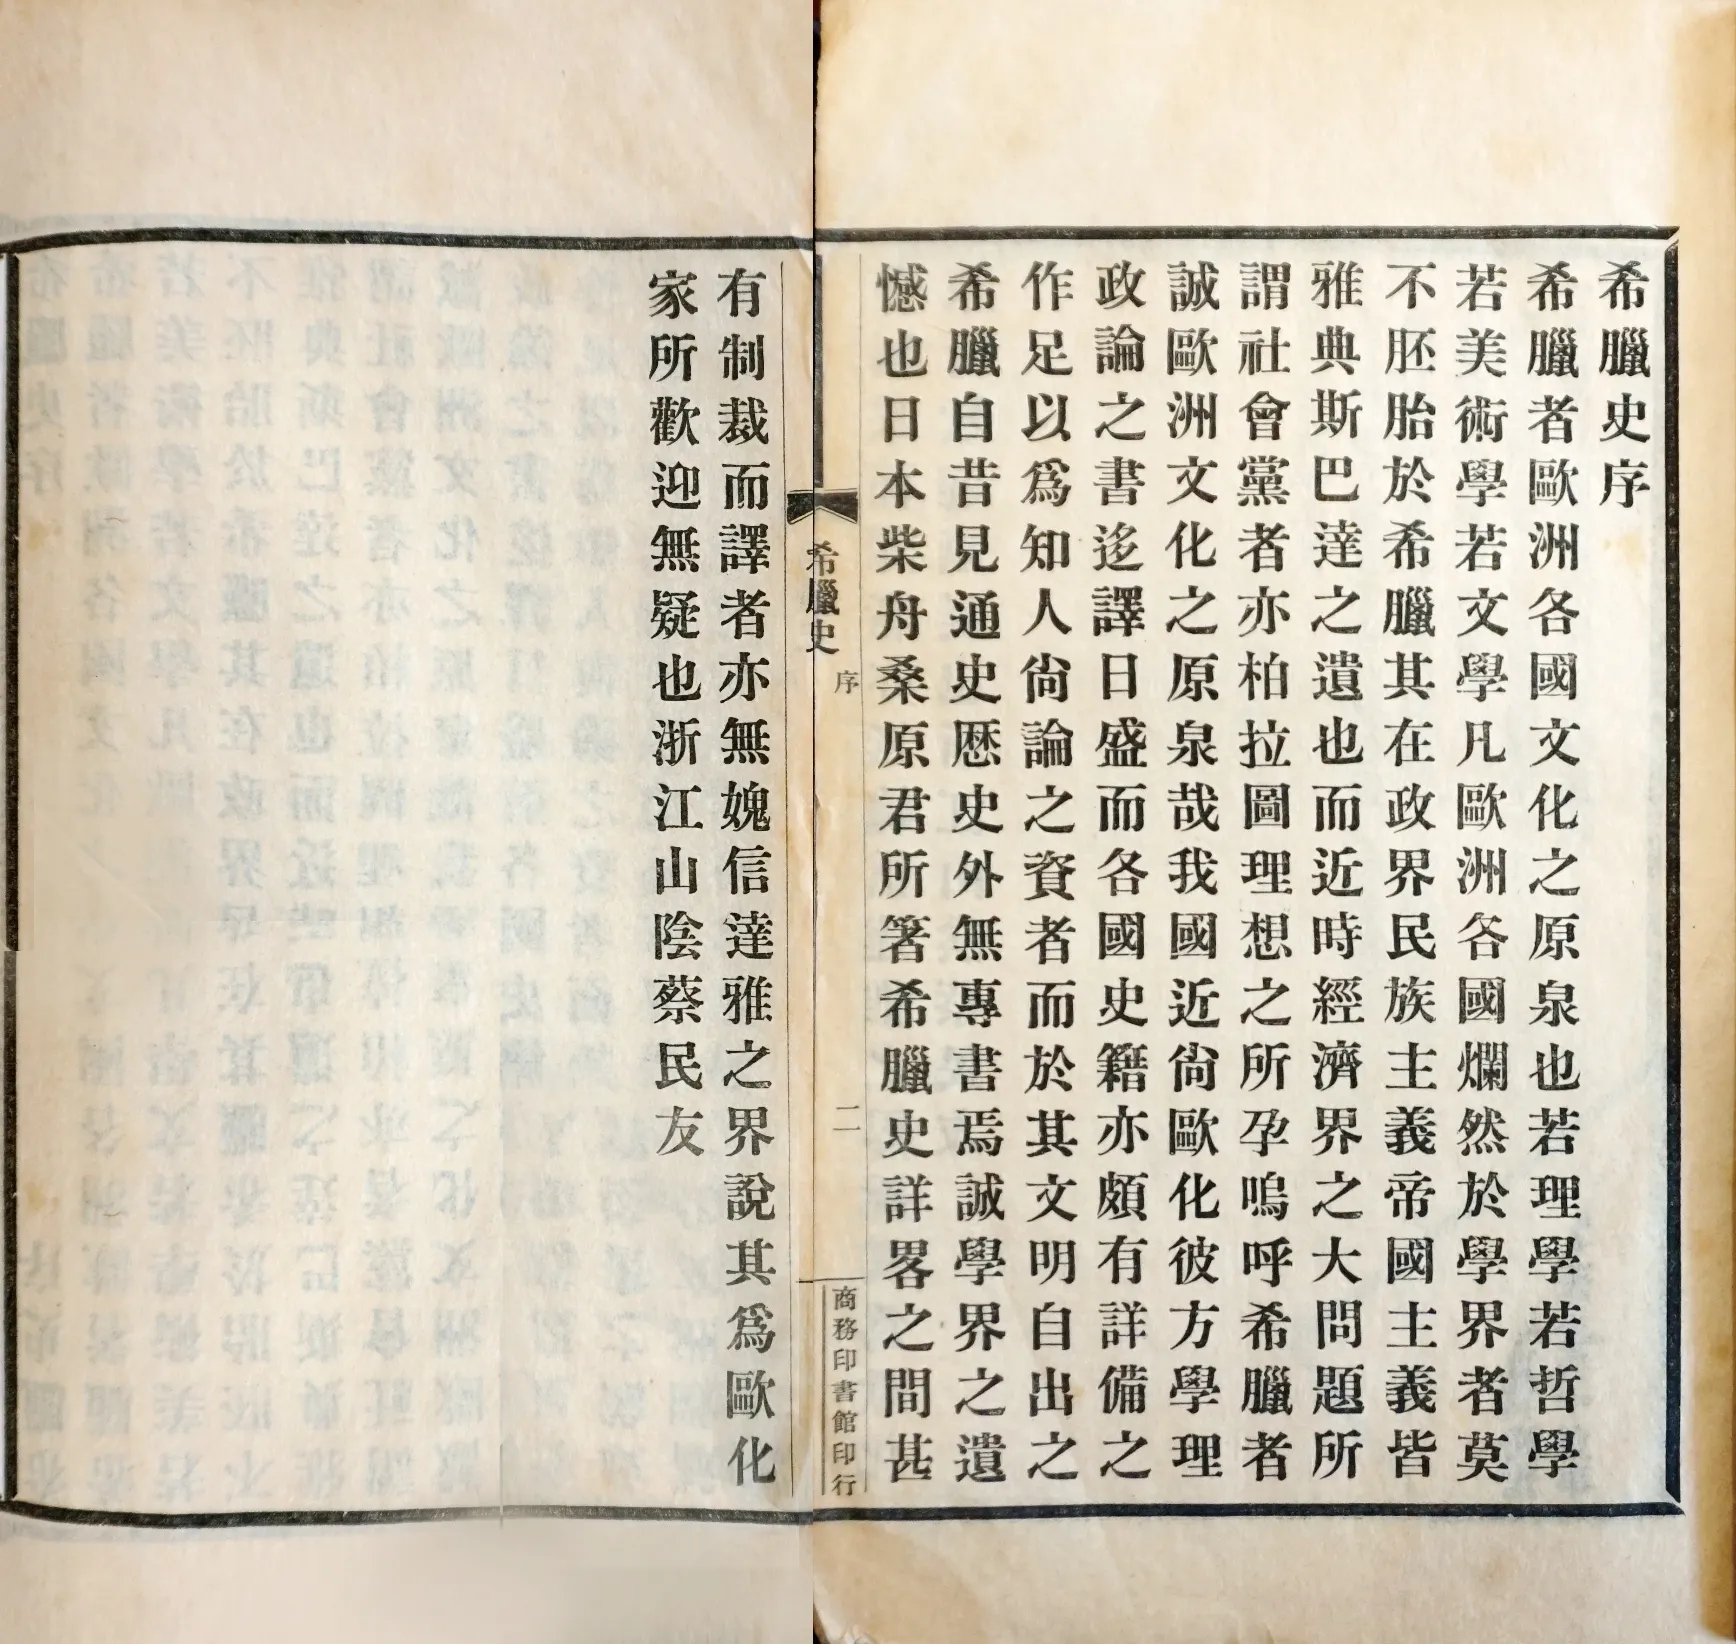 希臘史序
希臘者歐洲各國文化之原泉也若理學若哲學
若美術學若文學凡歐洲各國爛然於學界者莫
不胚胎於希臘其在政界民族主義帝國主義皆
雅典斯巴達之遺也而近時經濟界之大問題所
謂社會黨者亦柏拉圖理想之所孕嗚呼希臘者
誠歐洲文化之原泉哉我國近尙歐化彼方學理
政論之書迻譯日盛而各國史籍亦頗有詳備之
作足以爲知人尙論之資者而於其文明自出之
希臘自昔見通史歷史外無專書焉誠學界之遺
憾也日本柴舟桑原君所箸希臘史詳畧之間甚
希臘史
序
二
商務印書館印行
有制裁而譯者亦無媿信達雅之界說其爲歐化
家所歡迎無疑也浙江山陰蔡民友